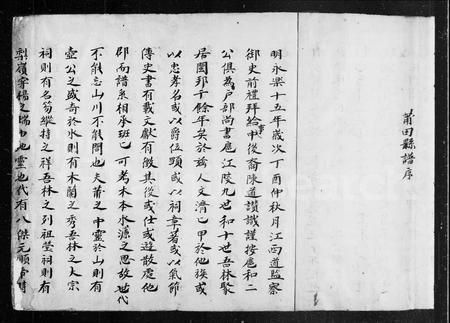 莆田縣譜序
明永樂十五年歲次丁酉仲秋月江西道監察
御史前禮拜給事中後裔陳道讚識謹按扈和二
公俱為戶部尚書扈江陵九世和十世吾林聚
居圍邦千餘年矣於茲人文濟已甲於他族或
以忠孝名或以爵位顯或以祠章著或以氣節
傳史書有載文獻有徵其後或仕或遊散處他
邵而譜系相承班已可考木本水源之思故世代
不能忘山川不能間也夫莆之中靈於山則有
壺公之盛奇於水則有木蘭之秀吾林之大宗
祠則有名笏縱持之祥吾林之列祖塋祠則有
梨嶺寧楊之端由地靈也代有八傑元順帝時